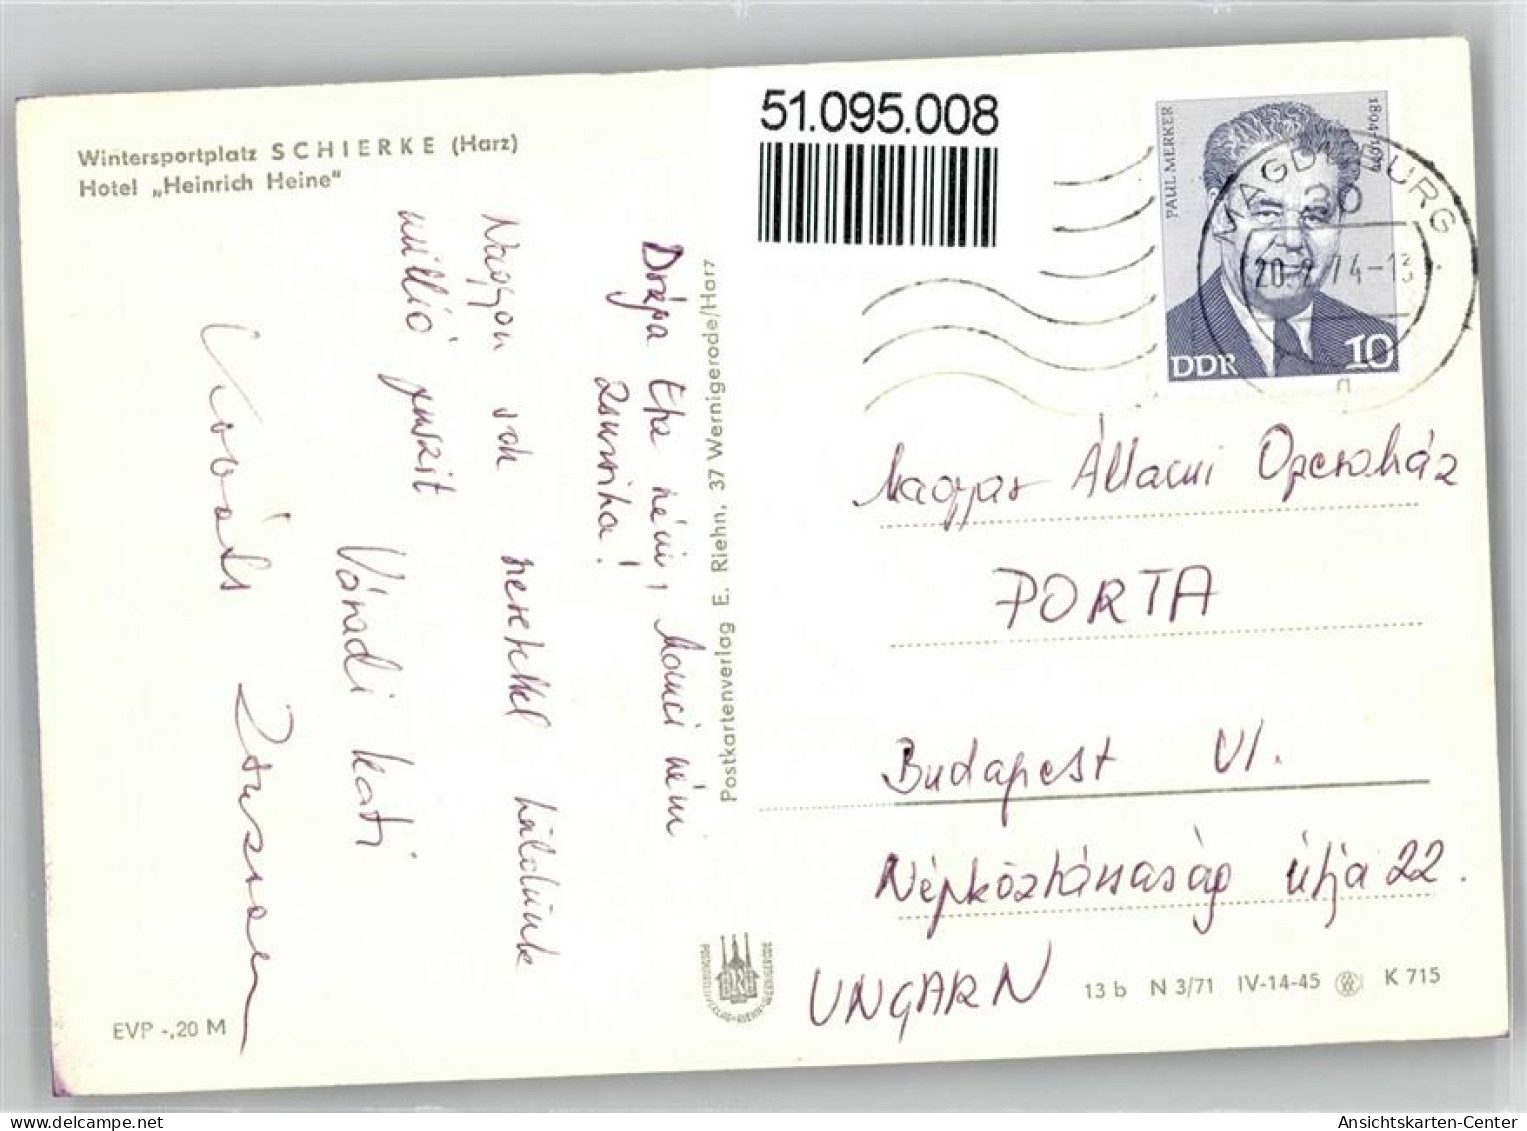 Wintersportplatz SCHIERKE (Harz)
Hotel „Heinrich Heine"
51.095.008
PAUL MERKER
1894-1977
DDR
10
MAGDEBURG
30
20.2.74-13
a
Drága Eta néni, Manci néni
Zsuzsika!
Nagyon sok szeretettel küldünk
millió puszit
Váradi Kati
Kovács Zsuzsa
Postkartenverlag E. Riehn, 37 Wernigerode/Harz
Magyar Állami Operaház
PORTA
Budapest VI.
Népköztársaság útja 22.
UNGARN
EVP -,20 M
13 b N 3/71 IV-14-45 K 715
Ansichtskarten-Center
www.delcampe.net